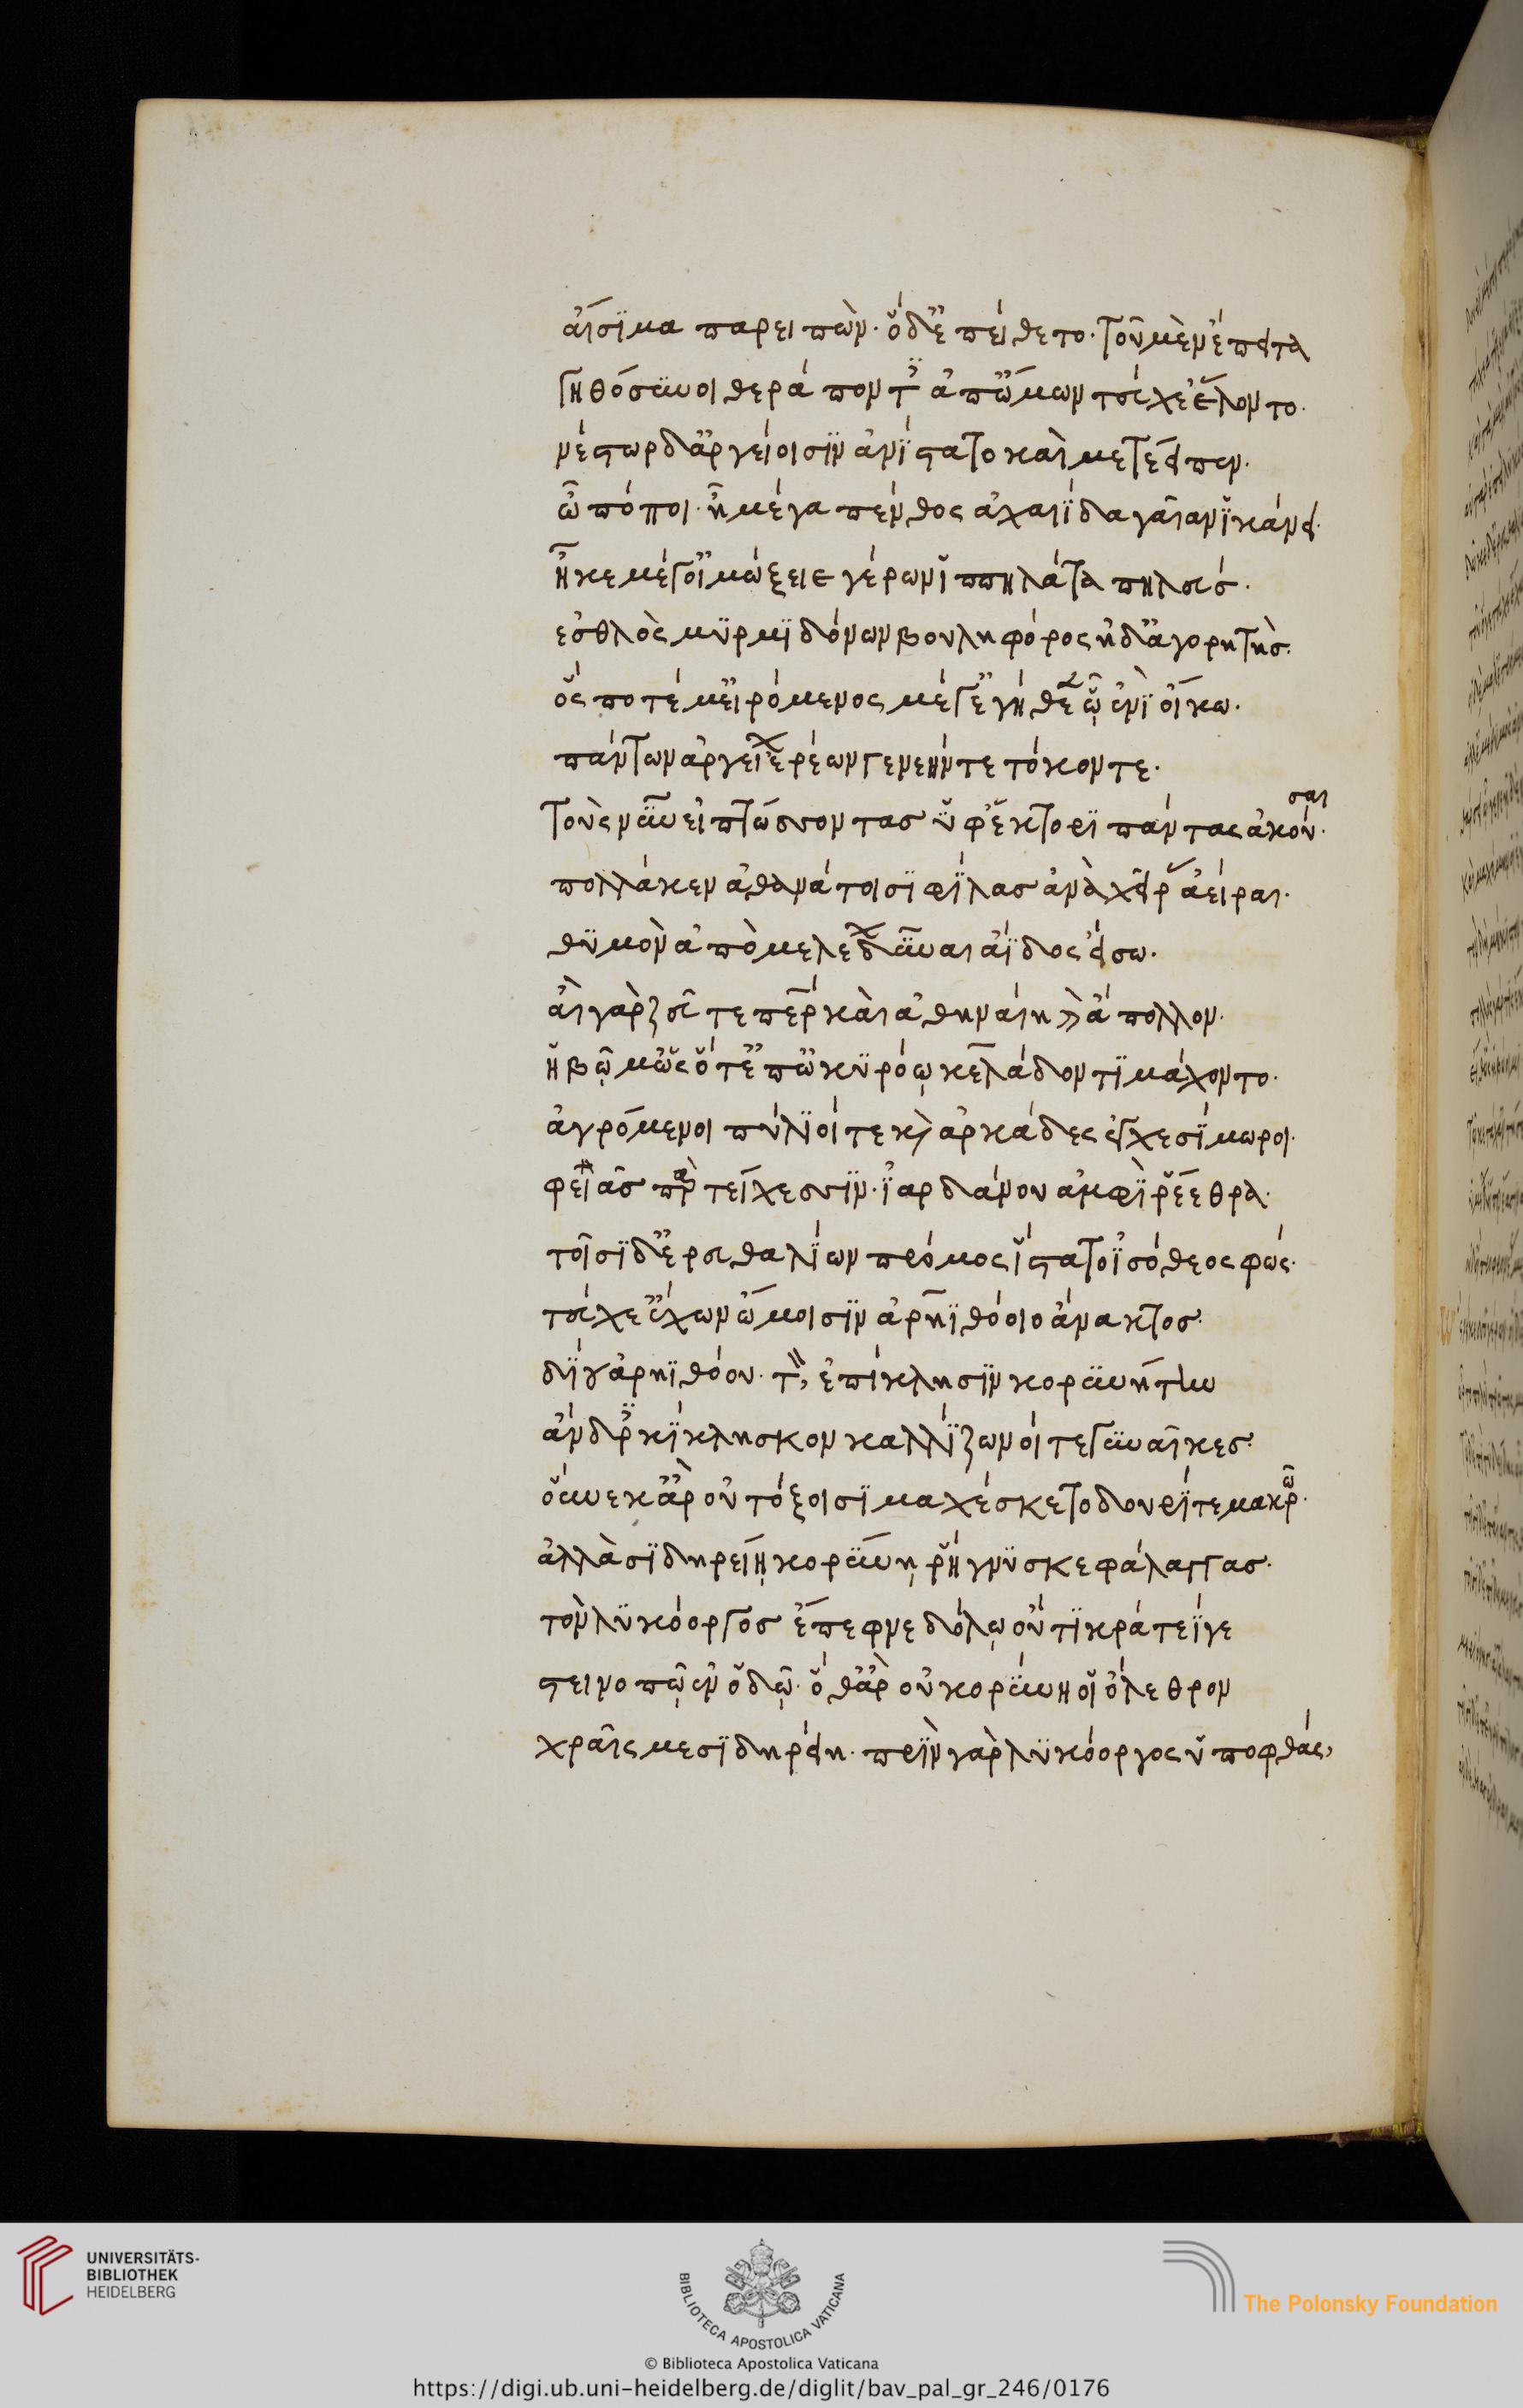 αἴσϊμα παρειπὼν· ὁ δ' ἐπείθετο· τοῦ μὲν ἔπειτα
γηθόσυνοι θεράποντ(ες) ἀπ' ὤμων τεύχε' ἕλοντο·
νέστωρ δ' ἀργείοισϊν ἀνΐστατο καὶ μετέειπεν·
ὢ πόποι· ἦ μέγα πένθος ἀχαιΐδα γαῖαν ἱκάνει·
ἦ κε μέγ' οἰμώξειε γέρων ἱππηλάτα πηλεύς·
ἐσθλὸς μυρμϊδόνων βουληφόρος ἠδ' ἀγορητής·
ὅς ποτέ μ' εἰρόμενος μέγ' ἐγήθεεν ᾧ ἐνὶ οἴκω·
πάντων ἀργείων ἐρέων γενεήν τε τόκον τε·
τοὺς νῦν εἰ πτώσσοντας ὑφ' ἕκτορϊ πάντας ἀκούσαι·
πολλά κεν ἀθανάτοισϊ φίλας ἀνὰ χεῖρ(ας) ἀείραι·
θυμὸν ἀπὸ μελέων δῦναι ἄϊδος εἴσω·
αἲ γὰρ ζεῦ τε πάτερ καὶ ἀθηναίη καὶ ἄπολλον·
ἡβῷμ' ὡς ὅτ' ἐπ' ὠκυρόῳ κελάδοντϊ μάχοντο·
ἀγρόμενοι πύλϊοί τε κ(αὶ) ἀρκάδες ἐγχεσΐμωροι·
φειᾶς παρ τείχεσσϊν· ἰαρδάνου ἀμφὶ ῥέεθρα·
τοῖσϊ δ' ἐρευθαλΐων πρόμος ἵστατο ἰσόθεος φώς·
τεύχε' ἔχων ὤμοισϊν ἀρηϊθόοιο ἄνακτος·
δΐου ἀρηϊθόου· τὸν ἐπίκλησϊν κορυνήτην
ἄνδρ(ες) κίκλησκον καλλΐζωνοί τε γυναῖκες·
οὕνεκ' ἂρ οὐ τόξοισϊ μαχέσκετο δουρΐ τε μακρῷ·
ἀλλὰ σϊδηρείῃ κορύνῃ ῥήγνυσκε φάλαγγας·
τὸν λυκόοργος ἔπεφνε δόλῳ οὔ τϊ κράτεΐ γε
στεινοπῷ ἐν ὁδῷ· ὅθ' ἂρ οὐ κορύνη οἱ ὄλεθρον
χραῖσμε σϊδηρείη· πρὶν γὰρ λυκόοργος ὑποφθάς,
UNIVERSITÄTS-
BIBLIOTHEK
HEIDELBERG
BIBLIOTECA APOSTOLICA VATICANA
The Polonsky Foundation
© Biblioteca Apostolica Vaticana
https://digi.ub.uni-heidelberg.de/diglit/bav_pal_gr_246/0176